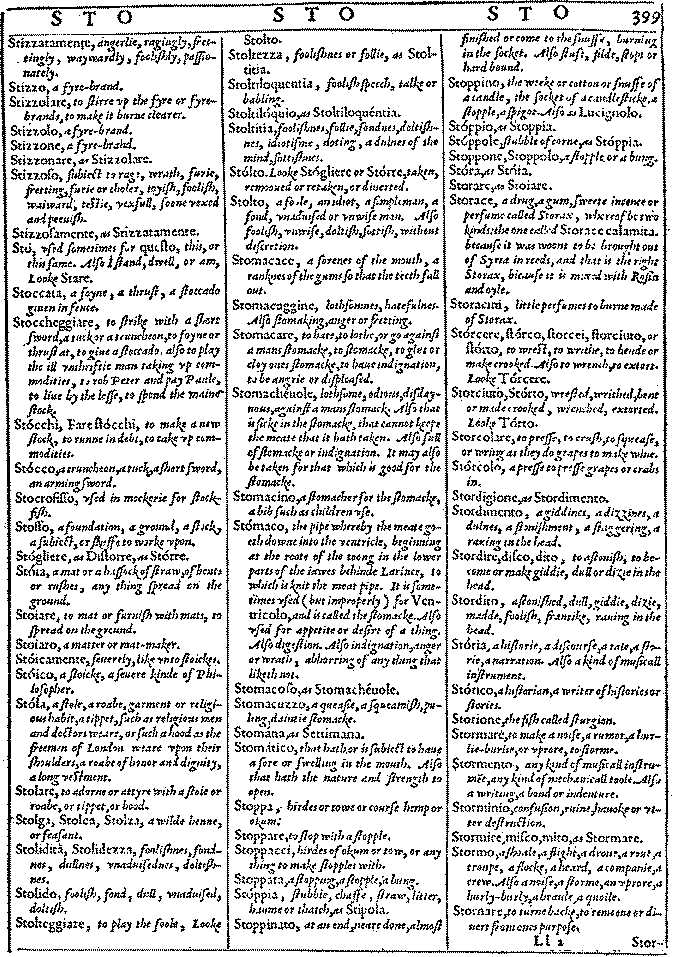 S T O S T O S T O 399
Stizzatamente, angerlie, ragingly, fret-
tingly, waywardly, foolishly, passio-
nately.
Stizzo, a fyre-brand.
Stizzolare, to stirre vp the fyre or fyre-
brands, to make it burne clearer.
Stizzolo, a fyre-brand.
Stizzone, a fyre-brand.
Stizzonare, as Stizzolare.
Stizzoso, subiect to rage, wrath, furie,
fretting, furie or choler, toyish, foolish,
waiward, testie, vexfull, soone vexed
and peeuish.
Stizzosamente, as Stizzatamente.
Stò, vsed sometimes for questo, this, or
this same. Also I stand, dwell, or am,
Looke Stare.
Stoccata, a foyne, a thrust, a stoccado
giuen in fence.
Stoccheggiare, to strike with a short
sword, a tuck or a truncheon, to foyne or
thrust at, to giue a stoccado. also to play
the ill vnthriftie man taking vp com-
modities, to rob Peter and pay Paule,
to liue by the losse, to spend the maine
stock.
Stócchi, Fare stócchi, to make a new
stock, to runne in debt, to take vp com-
modities.
Stócco, a truncheon, a tuck, a short sword,
an arming sword.
Stocrofisso, vsed in mockerie for stock-
fish.
Stoffo, a foundation, a ground, a stock,
a subiect, or stuffe to worke vpon.
Stógliere, as Distorre, as Stórre.
Stóia, a mat or a hassock of straw, of bents
or rushes, any thing spread on the
ground.
Stoiare, to mat or furnish with mats, to
spread on the ground.
Stoiaro, a matter or mat-maker.
Stóicamente, seuerely, like vnto stoickes.
Stóico, a stoicke, a seuere kinde of Phi-
losopher.
Stóla, a stole, a roabe, garment or religi-
ous habit, a tippet, such as religious men
and doctors weare, or such a hood as the
freemen of London weare vpon their
shoulders, a roabe of honor and dignity,
a long vestment.
Stolare, to adorne or attyre with a stole or
roabe, or tippet, or hood.
Stolga, Stolca, Stolza, a wilde henne,
or feasant.
Stolidità, Stolidezza, foolishnes, fond-
nes, dullnes, vnaduisednes, doltish-
nes.
Stolido, foolish, fond, dull, vnaduised,
doltish.
Stolteggiare, to play the foole, Looke
Stolto.
Stoltezza, foolishnes or follie, as Stol-
titia.
Stoltiloquentia, foolish speech, talke or
babling.
Stoltilóquio, as Stoltiloquéntia.
Stoltitia, foolishnes, follie, fondnes, doltish-
nes, idiotisme, doting, a dulnes of the
mind, sottishnes.
Stólto. Looke Stógliere or Stórre, taken,
remoued or retaken, or diuerted.
Stolto, a fole, an idiot, a simpleman, a
fond, vnaduised or vnwise man. Also
foolish, vnwise, doltish, sottish, without
descretion.
Stomacace, a sorenes of the mouth, a
ranknes of the gums so that the teeth fall
out.
Stomacaggine, lothsomnes, hatefulnes.
Also stomaking, anger or fretting.
Stomacare, to hate, to lothe, or go against
a mans stomacke, to stomacke, to glut or
cloy ones stomacke, to haue indignation,
to be angrie or displeased.
Stomacheuole, lothsome, odious, disday-
nous, against a mans stomack. Also that
is sicke in the stomack, that cannot keepe
the meate that it hath taken. Also full
of stomacke or indignation. It may also
be taken for that which is good for the
stomacke.
Stomacino, a stomacher for the stomacke,
a bib such as children vse.
Stómaco, the pipe whereby the meate go-
eth downe into the ventricle, beginning
at the roote of the toong in the lower
parts of the iawes behinde Larince, to
which is knit the meat pipe. It is some-
times vsed (but improperly) for Ven-
tricolo, and is called the stomacke. Also
vsed for appetite or desire of a thing.
Also digestion. Also indignation, anger
or wrath, abhorring of any thing that
liketh not.
Stomacoso, as Stomachéuole.
Stomacuzzo, a queasie, a squeamish, pu-
ling, daintie stomacke.
Stomána, as Settimana.
Stomático, that hath, or is subiect to haue
a sore or swelling in the mouth. Also
that hath the nature and strength to
open.
Stoppa, hirdes or towe or course hemp or
okum.
Stoppare, to stop with a stopple.
Stoppacci, hirdes of okum or tow, or any
thing to make stopples with.
Stoppata, a stopping, a stopple, a bung.
Stóppia, stubble, chaffe, straw, litter,
haume or thatch, as Stipola.
Stoppinato, at an end, neere done, almost
finished or come to the snuffe, burning
in the socket. Also stuft, filde, stopt or
hard bound.
Stoppino, the weeke or cotton or snuffe of
a candle, the socket of a candlesticke, a
stopple, a spigot. Also as Lucignolo.
Stóppio, as Stoppia.
Stóppole, stubble of corne, as Stóppia.
Stoppone, Stoppolo, a stopple or a bung.
Stóra, as Stóia.
Storare, as Stoiare.
Storace, a drug, a gum, sweete incense or
perfume called Storax, whereof be two
kinds: the one called Storace calamita.
because it was woont to be brought out
of Syria in reeds, and that is the right
Storax, bicause it is mixed with Rosin
and oyle.
Storacini, little perfumes to burne made
of Storax.
Stórcere, stórco, storcei, storciuto, or
stórto, to wrest, to writhe, to bende or
make crooked. Also to wrench, to extort.
Looke Tórcere.
Storciuto, Stórto, wrested, writhed, bent
or made crooked, wrenched, extorted.
Looke Tórto.
Storcolare, to presse, to crush, to squease,
or wring as they do grapes to make wine.
Stórcolo, a presse to presse grapes or crabs
in.
Stordigione, as Stordimento.
Stordimento, a giddines, a dizzines, a
dulnes, astonishment, a staggering, a
rauing in the head.
Stordire, disco, dito, to astonish, to be-
come or make giddie, dull or dizie in the
head.
Stordito, astonished, dull, giddie, dizie,
madde, foolish, frantike, rauing in the
head.
Stória, a historie, a discourse, a tale, a sto-
rie, a narration. Also a kind of musicall
instrument.
Stórico, a historian, a writer of histories or
stories.
Storione, the fish called sturgian.
Stormare, to make a noise, a rumor, a hur-
lie-burlie, or vprore, to storme.
Stormento, any kind of musicall instru-
mẽt, any kind of mechanicall toole. Also
a writing, a bond or indenture.
Storminio, confusion, ruine, hauoke or vt-
ter destruction.
Stormire, misco, mito, as Stormare.
Stormo, a shoale, a flight, a droue, a rout, a
troupe, a flocke, a heard, a companie, a
crew. Also a noise, a storme, an vprore, a
hurly-burly, a braule, a quoile.
Stornare, to turne backe, to remoue or di-
uert from ones purpose.
Ll 2 Stor-